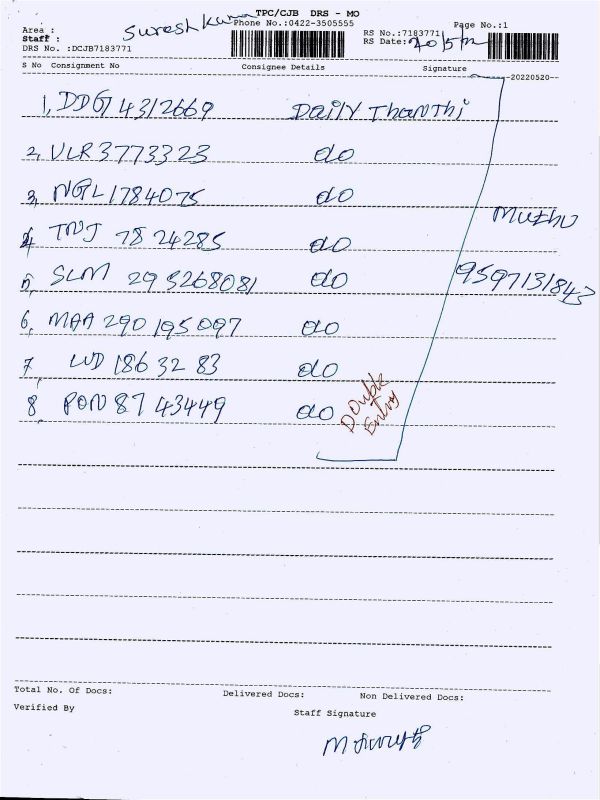 TPC/CJB DRS - MO
Area : Suresh Kumar Phone No.:0422-3505555 Page No.:1
Staff : RS No.:7183771
DRS No. :DCJB7183771 RS Date: 20/5
S No Consignment No Consignee Details Signature
20220520
1, DDG1 4312669 Daily Thanthi
2, VLR 3773323 do
3, NGL 1784075 do
4, TNJ 7824285 do
5, SLM 295268081 do
6, MAA 290195097 do
7, LVD 1863283 do
8, PON 8743449 do
Muthu
9597131843
Double
Entry
Total No. Of Docs: Delivered Docs: Non Delivered Docs:
Verified By Staff Signature